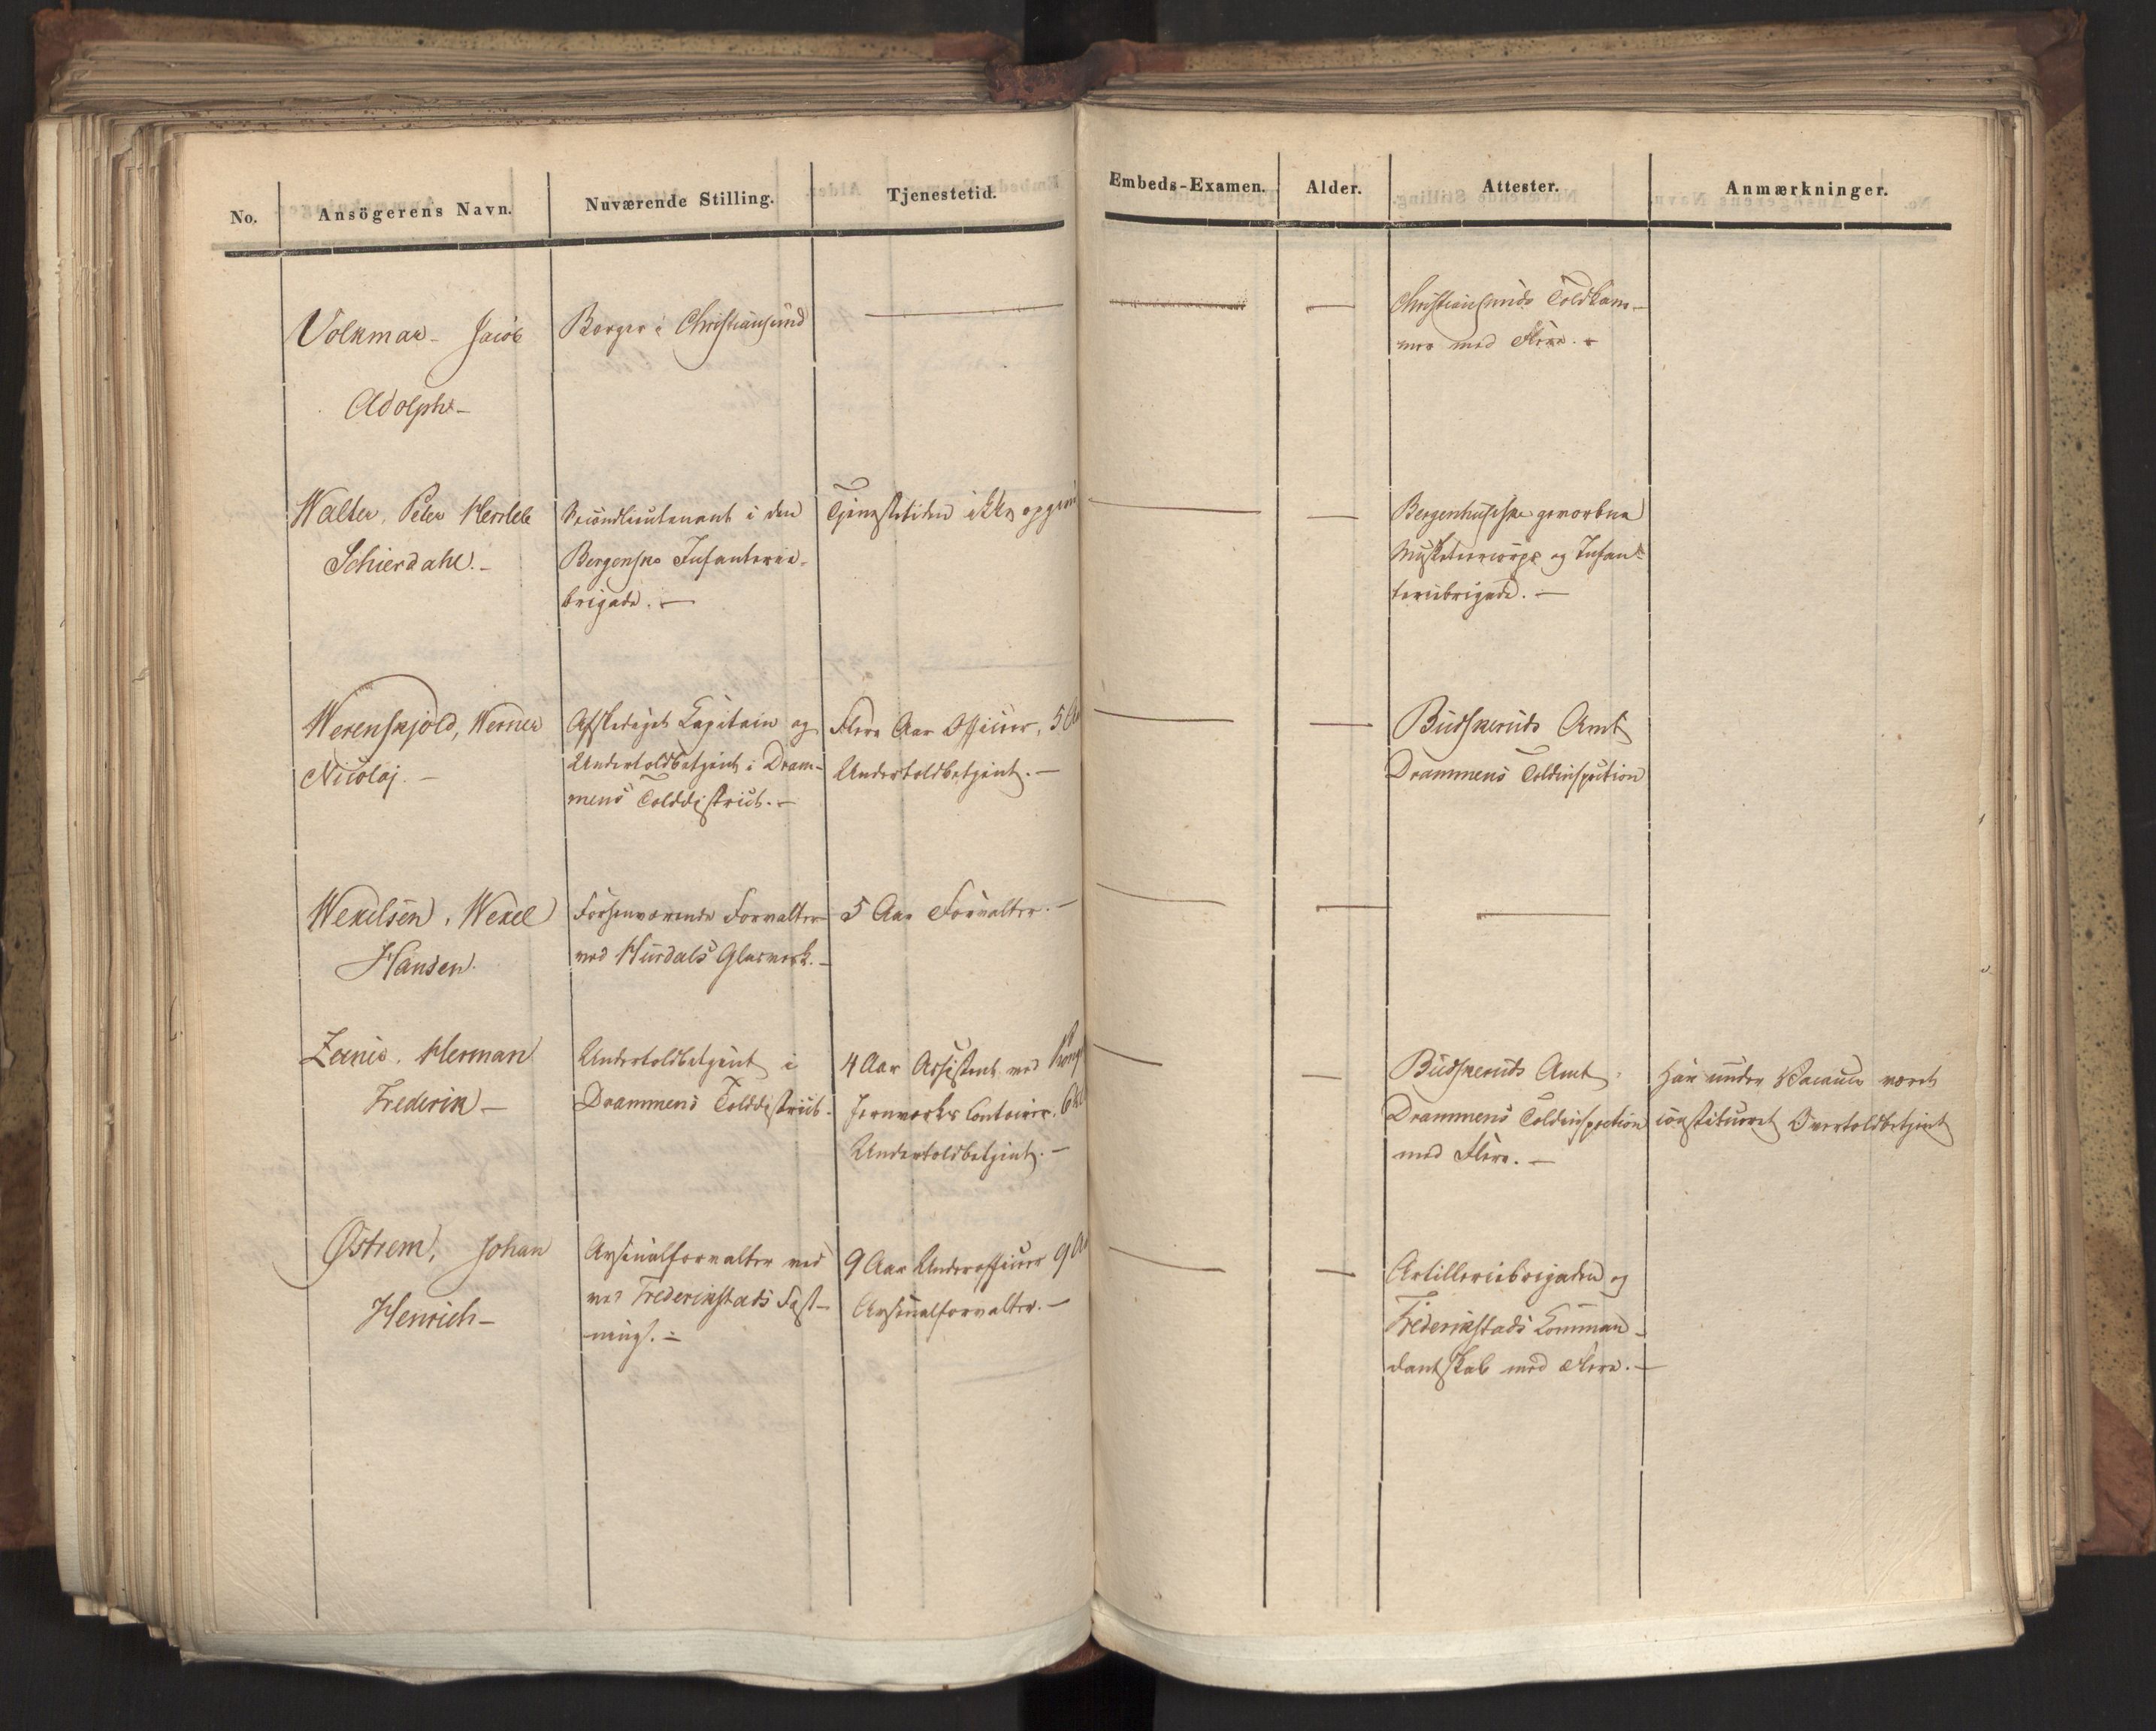 No. Ansögerens Navn. Nuværende Stilling. Tjenestetid. Embeds-Examen. Alder. Attester. Anmærkninger.
Volkmar - Jacob
Adolph -
Borger i Christiansund
Christiansunds Toldkam-
mer med Flere. -
Walter, Peter Herrleb
Schierdahl. -
Secondlieutenant i den
Bergenske Infanterie-
brigade. -
Tjenestetiden ikke
Bergenhusiske gevorbne
Musketeercorps og Infan-
teriebrigade. -
Werenskjold, Werner
Nicolaj. -
Afskediget Capitain og
Undertoldbetjent i Dram-
mens Tolddistrict. -
Flere Aar Officier, 5
Undertoldbetjent. -
Budskeruds Amt
Drammens Toldinspection
Wexelsen, Wexel
Hansen.
Forhenværende Forvalter
ved Hurdals Glasværk. -
5 Aar Forvalter. -
Herman
Frederik -
Undertoldbetjent i
Drammens Tolddistrict.
4 Aar Assistent ved
Jernværks Contoir, 6
Undertoldbetjent. -
Budskeruds Amt,
Drammens Toldinspection
med Flere. -
Har under Vacance været
constitueret Overtoldbetjent
Østrem, Johan
Henrich -
Arsenalforvalter ved
ved Frederikstads Fæst-
ning. -
9 Aar Underofficier 9
Arsenalforvalter. -
Artilleriebrigaden og
Frederikstads Comman-
dantskab med Flere. -